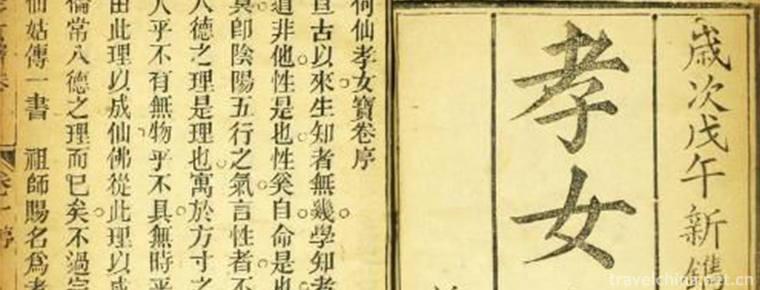 歲次戊午新鐫
孝女
何仙孝女寶卷序
亘古以來生知者無幾學知者
道非他性是也性奚自命是也
卽陰陽五行之氣言性者不
八德之理是理也寓於方寸之
人乎不有無物乎不具無時乎
由此理以成仙佛從此理以成
倫常八德之理而已矣不過
仙姑傳一書 祖師賜名爲孝